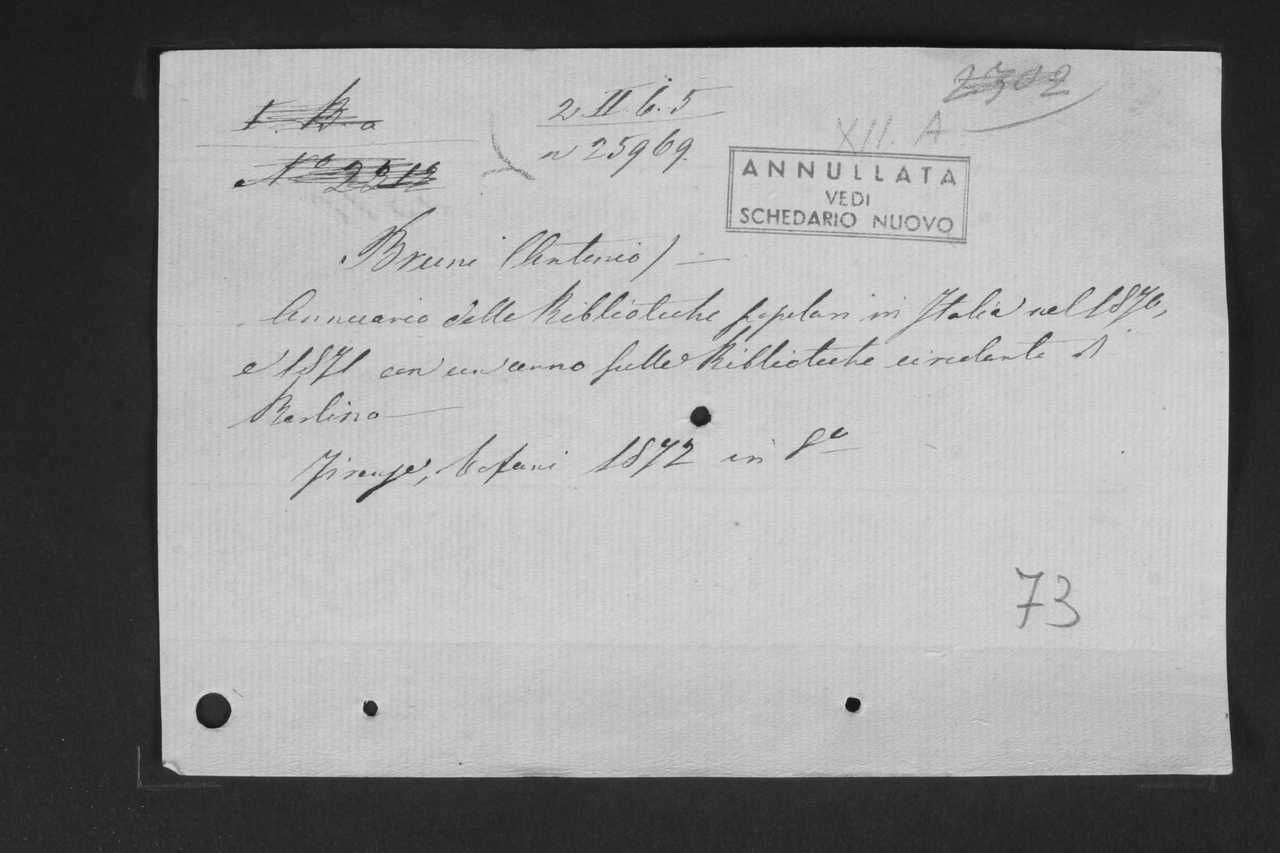 2302
I. B a
2 II. 6. 5
XII. A
Nº 2212
n 25969.
ANNULLATA
VEDI
SCHEDARIO NUOVO
Bruni (Antonio) —
Annuario delle Biblioteche popolari in Italia nel 1870,
e 1871 con un cenno sulle Biblioteche circolanti di
Berlino —
Firenze, Cofani 1872 in 8º
73